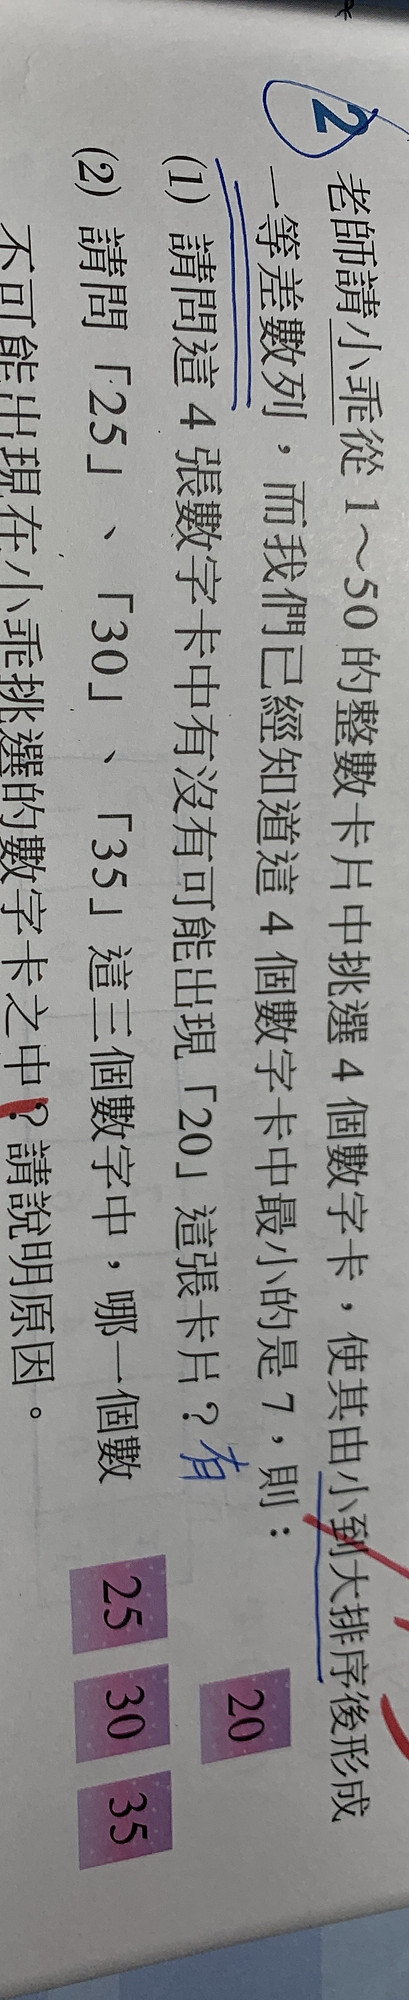 2 老師請小乖從 1～50 的整數卡片中挑選 4 個數字卡，使其由小到大排序後形成
一等差數列，而我們已經知道這 4 個數字卡中最小的是 7，則：
(1) 請問這 4 張數字卡中有沒有可能出現「20」這張卡片？有
20
(2) 請問「25」、「30」、「35」這三個數字中，哪一個數
不可能出現在小乖挑選的數字卡之中？請說明原因。
25 30 35